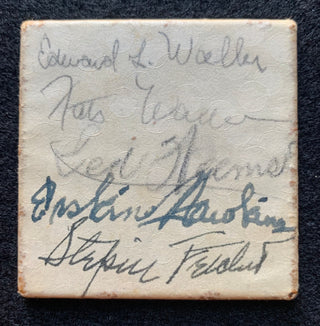 Edward L. Waller
Fats Waller
Ted Weems
Erskine Hawkins
Stepin Fetchit